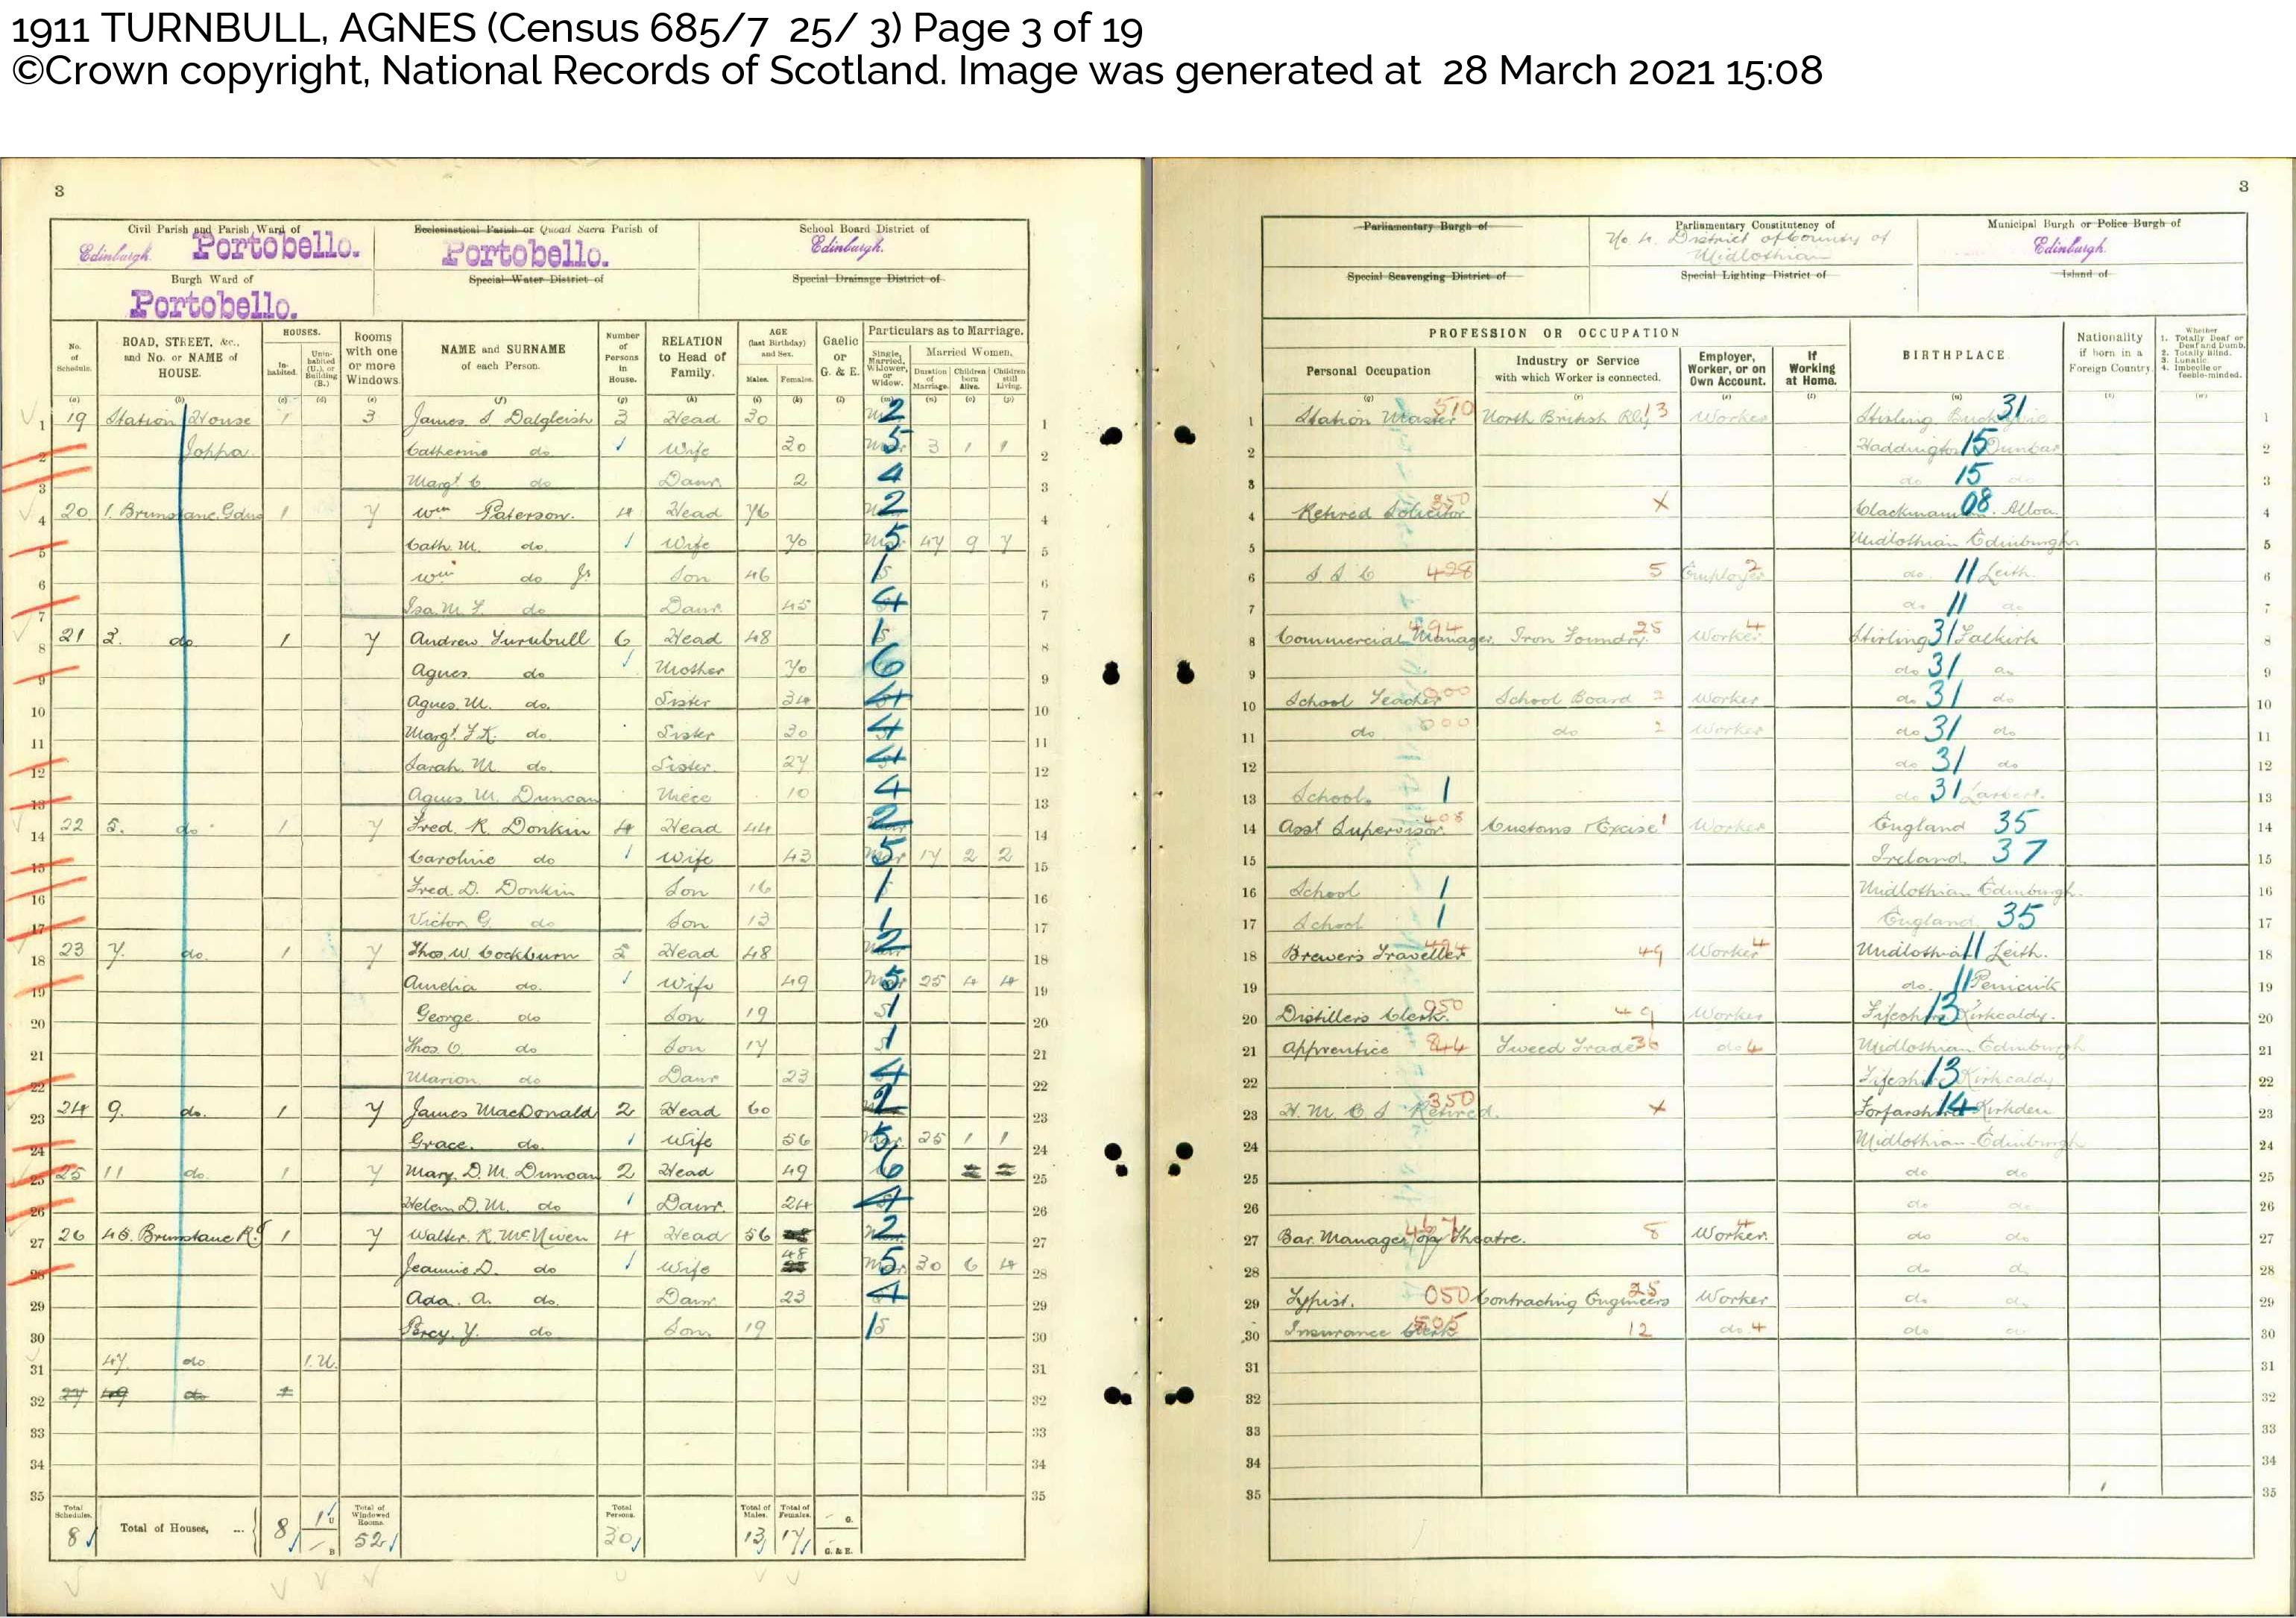 1911 TURNBULL, AGNES (Census 685/7 25/ 3) Page 3 of 19
©Crown copyright, National Records of Scotland. Image was generated at 28 March 2021 15:08
3
3
Civil Parish and Parish Ward of Edinburgh. Portobello.
Ecclesiastical Parish or Quoad Sacra Parish of Portobello.
School Board District of Edinburgh.
Burgh Ward of Portobello.
Special Water District of
Special Drainage District of
Parliamentary Burgh of
Parliamentary Constituency of District of County of Midlothian
Municipal Burgh or Police Burgh of Edinburgh.
Special Scavenging District of
Special Lighting District of
Island of
No. of Schedule. ROAD, STREET, &c., and No. or NAME of HOUSE. HOUSES. Inhabited. Uninhabited (U.), or Building (B.) Rooms with one or more Windows. NAME and SURNAME of each Person. Number of Persons in House. RELATION to Head of Family. AGE (last Birthday) and Sex. Males. Females. Gaelic or G. & E. Particulars as to Marriage. Single, Married, Widower, or Widow. Married Women. Duration of Marriage. Children born Alive. Children still Living.
PROFESSION OR OCCUPATION Personal Occupation Industry or Service with which Worker is connected. Employer, Worker, or on Own Account. If Working at Home. BIRTHPLACE. Nationality if born in a Foreign Country. Whether 1. Totally Deaf or Deaf and Dumb. 2. Totally Blind. 3. Lunatic. 4. Imbecile or feeble-minded.
1 19 Station House 1 3 James S. Dalgleish 3 Head 30 2 Station Master 510 North British Rly 13 Worker Stirling 31
2 Joppa Catherine do Wife 30 5 3 1 1 Haddington 15 Dunbar
3 Margt C. do Daur 2 4 do 15 do
4 20 1. Brunstane Gdns 1 7 Wm Paterson. 4 Head 76 2 Retired Solicitor X Clackmann 08 Alloa.
5 Cath. M. do. Wife 70 5 47 9 7 Midlothian Edinburgh
6 Wm do Jr Son 46 1 S S C 428 5 Employer 2 do 11 Leith.
7 Isa. M. F. do Daur 45 4 do 11 do
8 21 3. do 1 7 Andrew Turnbull 6 Head 48 1 Commercial Manager. Iron Foundry 25 Worker 4 Stirling 31 Falkirk
9 Agnes do Mother 70 6 do 31 do
10 Agnes. M. do. Sister 34 4 School Teacher School Board 2 Worker do 31 do
11 Margt. F. K. do Sister 30 4 do do 2 Worker do 31 do
12 Sarah. M. do. Sister 27 4 do 31 do
13 Agnes. M. Duncan Niece 10 4 School. 1 do 31 Larbert.
14 22 5. do 1 7 Fred. R. Donkin 4 Head 44 2 Asst Supervisor Customs & Excise 1 Worker England 35
15 Caroline do Wife 43 5 17 2 2 Ireland. 37
16 Fred. D. Donkin Son 16 1 School 1 Midlothian Edinburgh.
17 Victor G. do Son 13 1 School 1 England 35
18 23 7. do. 1 7 Thos. W. Cockburn 5 Head 48 2 Brewers Traveller 49 Worker 4 Midlothian 11 Leith.
19 Amelia do. Wife 49 5 25 4 4 do. 11 Penicuik
20 George do Son 19 1 Distillers Clerk. 49 Worker Fifeshire 13 Kirkcaldy.
21 Thos. C. do Son 17 1 Apprentice Tweed Trade 36 do 4 Midlothian Edinburgh
22 Marion do Daur 23 4 Fifeshire 13 Kirkcaldy
23 24 9. do. 1 7 James MacDonald 2 Head 60 2 H. M. C. S Retired. 350 X Forfarshire 14 Kirkden
24 Grace. do. Wife 56 5 25 1 1 Midlothian Edinburgh
25 25 11 do 1 7 Mary. D. M. Duncan 2 Head 49 6 do do
26 Helen D. M. do Daur. 24 4 do do
27 26 45. Brunstane Rd 1 7 Walter. R. McNiven 4 Head 56 2 Bar. Manager Theatre. 8 Worker. do do
28 Jeannie D. do Wife 48 5 30 6 4 do do
29 Ada. A. do. Daur 23 4 Typist. 050 Contracting Engineers 25 Worker do do
30 Percy. Y. do Son 19 1 Insurance Clerk 12 do 4 do do
31 47. do 1. U.
32 27 49 do 1
33
34
35
Total Schedules. 8 Total of Houses, ... 8 1 U – B Total of Windowed Rooms. 52 Total Persons. 30 Total of Males. 13 Total of Females. 17 – G. – G. & E.